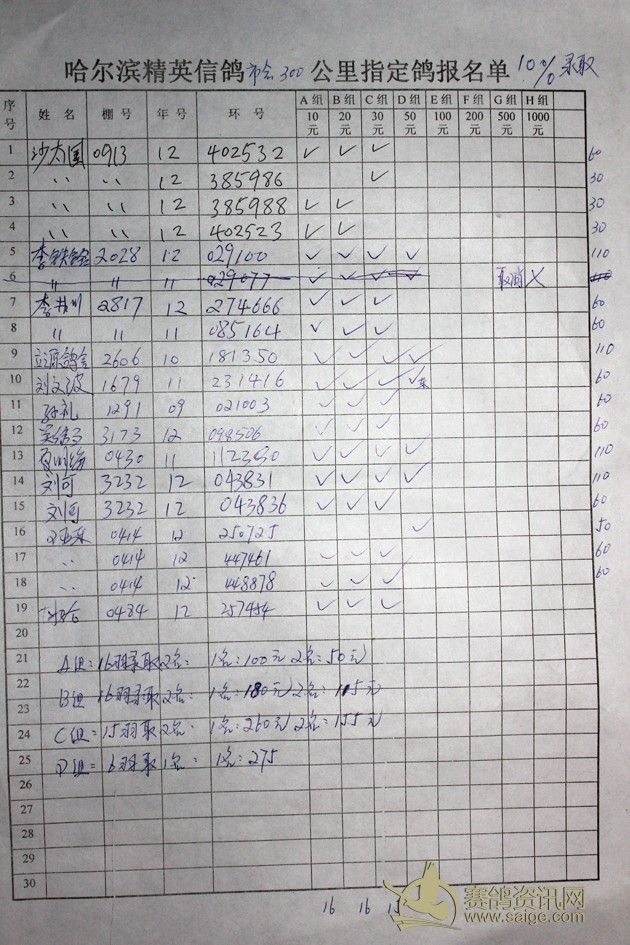 哈尔滨精英信鸽市会300公里指定鸽报名单 10% 录取
序号 姓 名 棚 号 年 号 环 号 A 组 10 元 B 组 20 元 C 组 30 元 D 组 50 元 E 组 100 元 F 组 200 元 G 组 500 元 H 组 1000 元
1 沙太国 0913 12 402532 ✓ ✓ ✓ 60
2 〃 〃 12 385986 ✓ 30
3 〃 〃 12 385988 ✓ ✓ 30
4 〃 〃 12 402523 ✓ ✓ 30
5 2028 12 029100 ✓ ✓ ✓ ✓ 110
6 〃 〃 11 029077 ✓ ✓ ✓ ✓ 取消 ✗ 110
7 2817 12 274666 ✓ ✓ ✓ 60
8 〃 〃 11 085164 ✓ ✓ ✓ 60
9 2606 10 181350 ✓ ✓ ✓ ✓ 110
10 刘文波 1679 11 231416 ✓ ✓ ✓ ✓ 60
11 孙礼 1291 09 021003 ✓ ✓ ✓ 60
12 3173 12 098506 ✓ ✓ ✓ 60
13 0430 11 ✓ ✓ ✓ ✓ 110
14 刘可 3232 12 043831 ✓ ✓ ✓ ✓ 110
15 刘可 3232 12 043836 ✓ ✓ ✓ 60
16 0414 12 250725 ✓ 50
17 〃 0414 12 447461 ✓ ✓ ✓ 60
18 〃 0414 12 448878 ✓ ✓ ✓ 60
19 0484 12 257454 ✓ ✓ ✓
20
21 A组=16羽录取2名: 1名:100元 2名:50元
22 B组 16羽录取2名: 1名:180元 2名:115元
23
24 C组=15羽取2名: 1名:260元 2名:155元
25 D组= 6羽取1名: 1名:275
26
27
28
29
30
16 16 15
赛鸽资讯网
www.saige.com